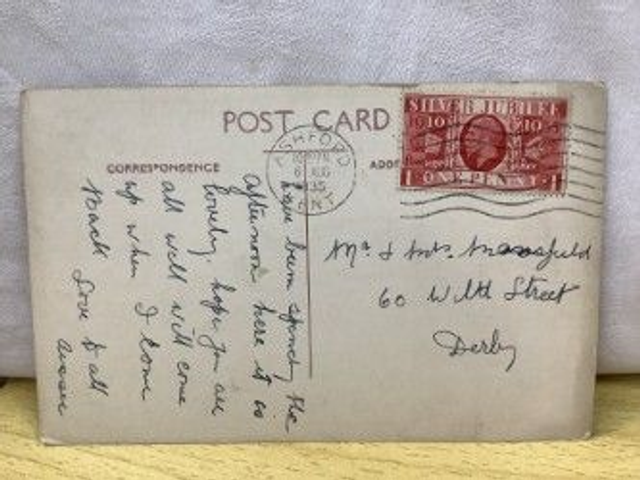 POST CARD
CORRESPONDENCE
ADD
SILVER JUBILEE
1910 1935
1 ONE PENNY 1
ASHFORD
6 AUG
1935
KENT
Have been spending the
afternoon here it is
lovely, hope you are
all well will come
up when I come
back Love to all
Mr & Mrs. Mansfield
60 Street
Derby